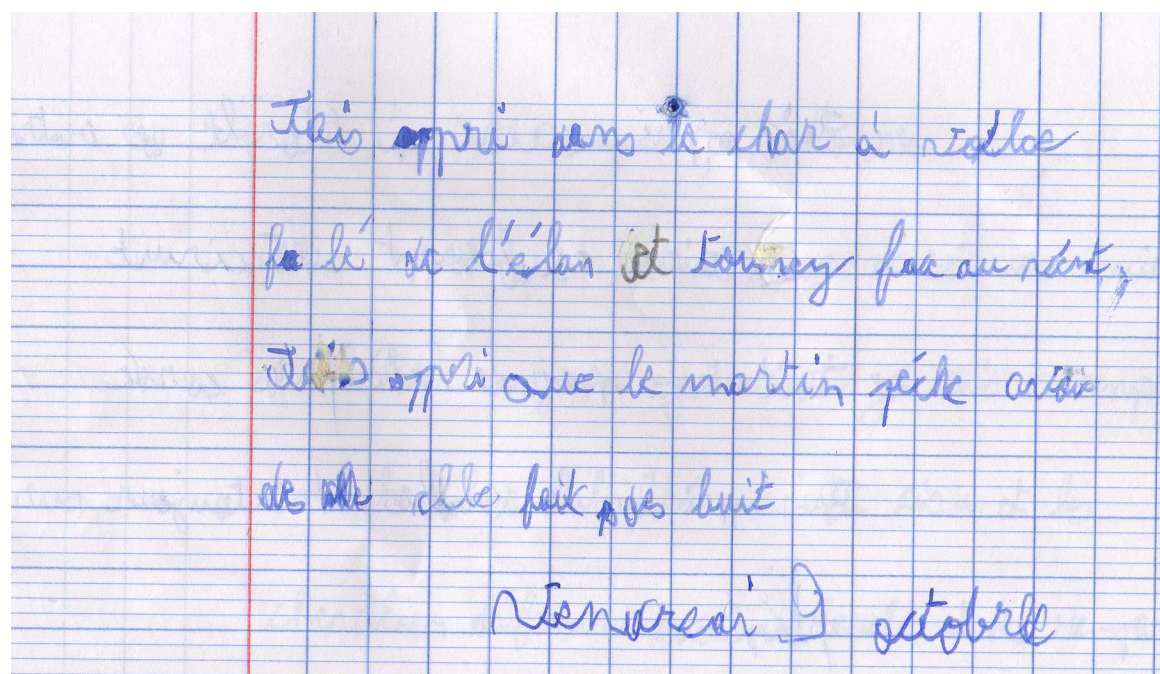 J'ais appri dans le char à voile
fa lé de l'élan et tourney fac au vent,
J'ais appri que le martin péche
des elle fait des buit
Vendredi 9 octobre